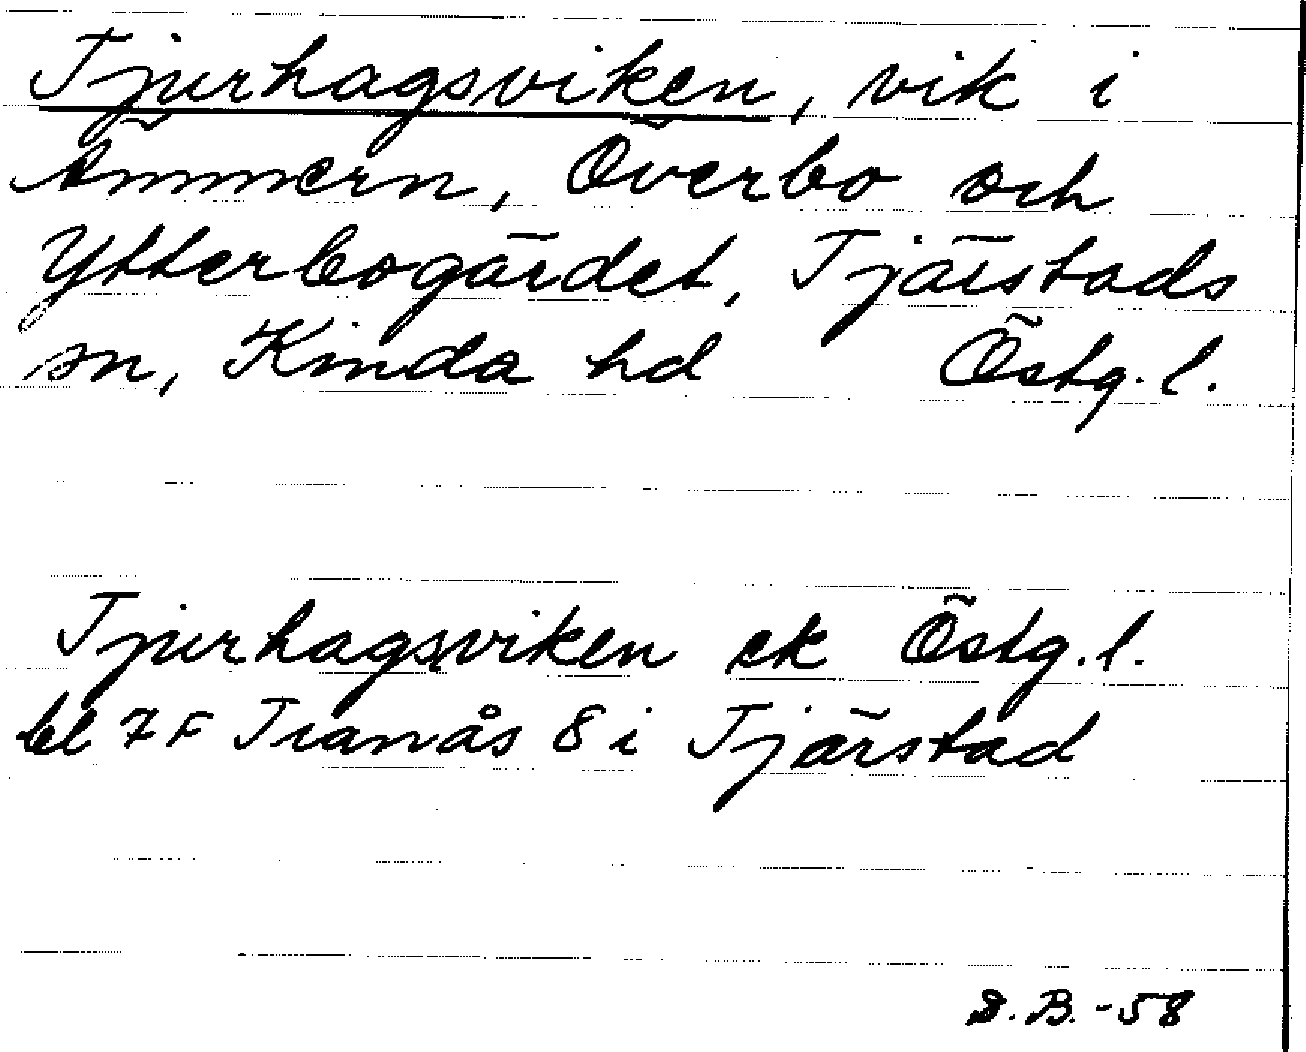 Tjurhagsviken, vik i
Ämmern, Överbo och
Ytterbogärdet, Tjärstads
sn, Kinda hd Östg. l.
Tjurhagsviken ek Östg. l.
bl 7 F Tranås 8 i Tjärstad
B. -58